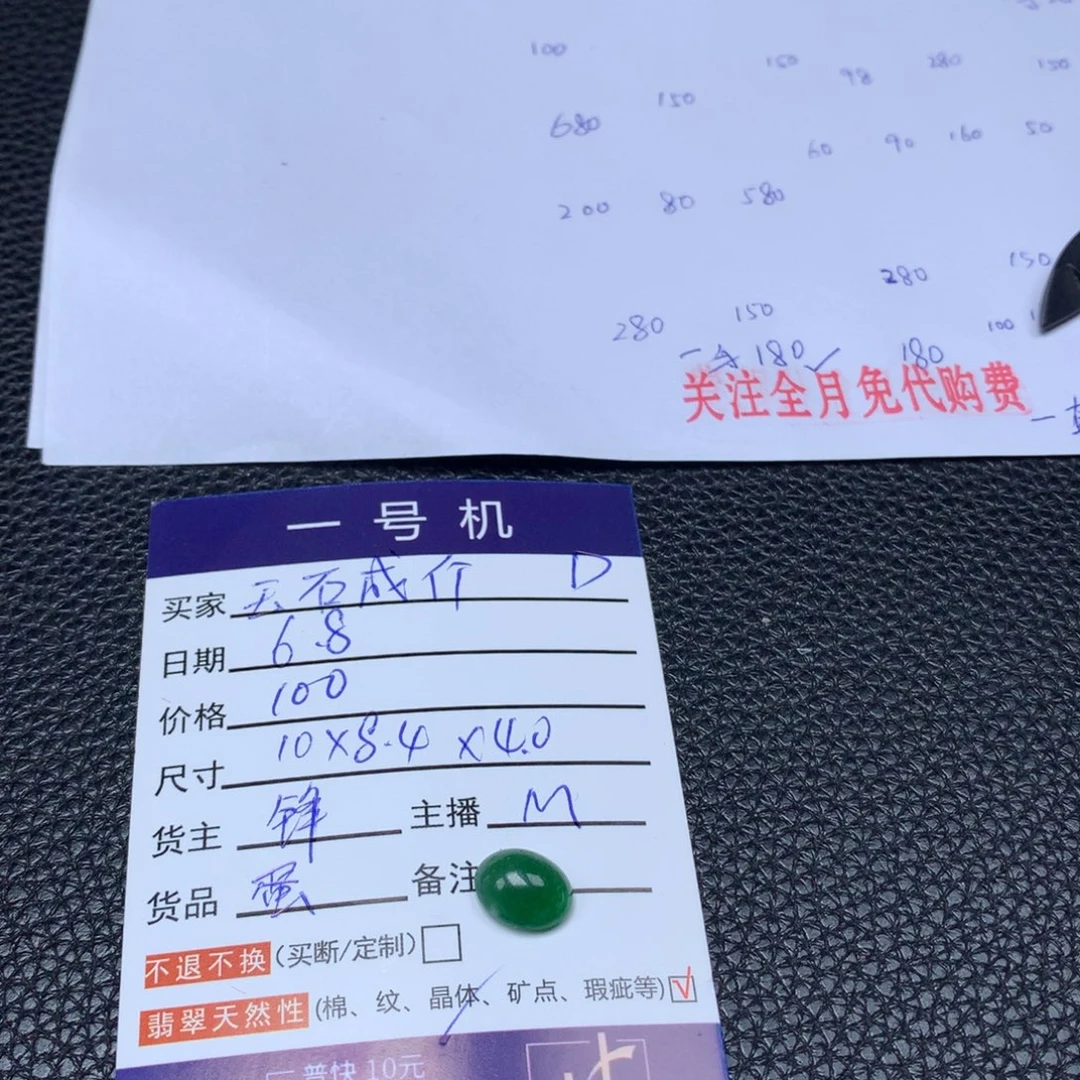 100 150 98 280 150
680 150 60 90 160 50
200 80 580
280 150
280 150 100
180✓ 180
关注全月免代购费
一号机
买家 玉石成介 D
日期 6.8
价格 100
尺寸 10×8.4×4.0
货主 锋 主播 M
货品 蛋 备注
不退不换(买断/定制)□
翡翠天然性(棉、纹、晶体、矿点、瑕疵等)☑
普快10元